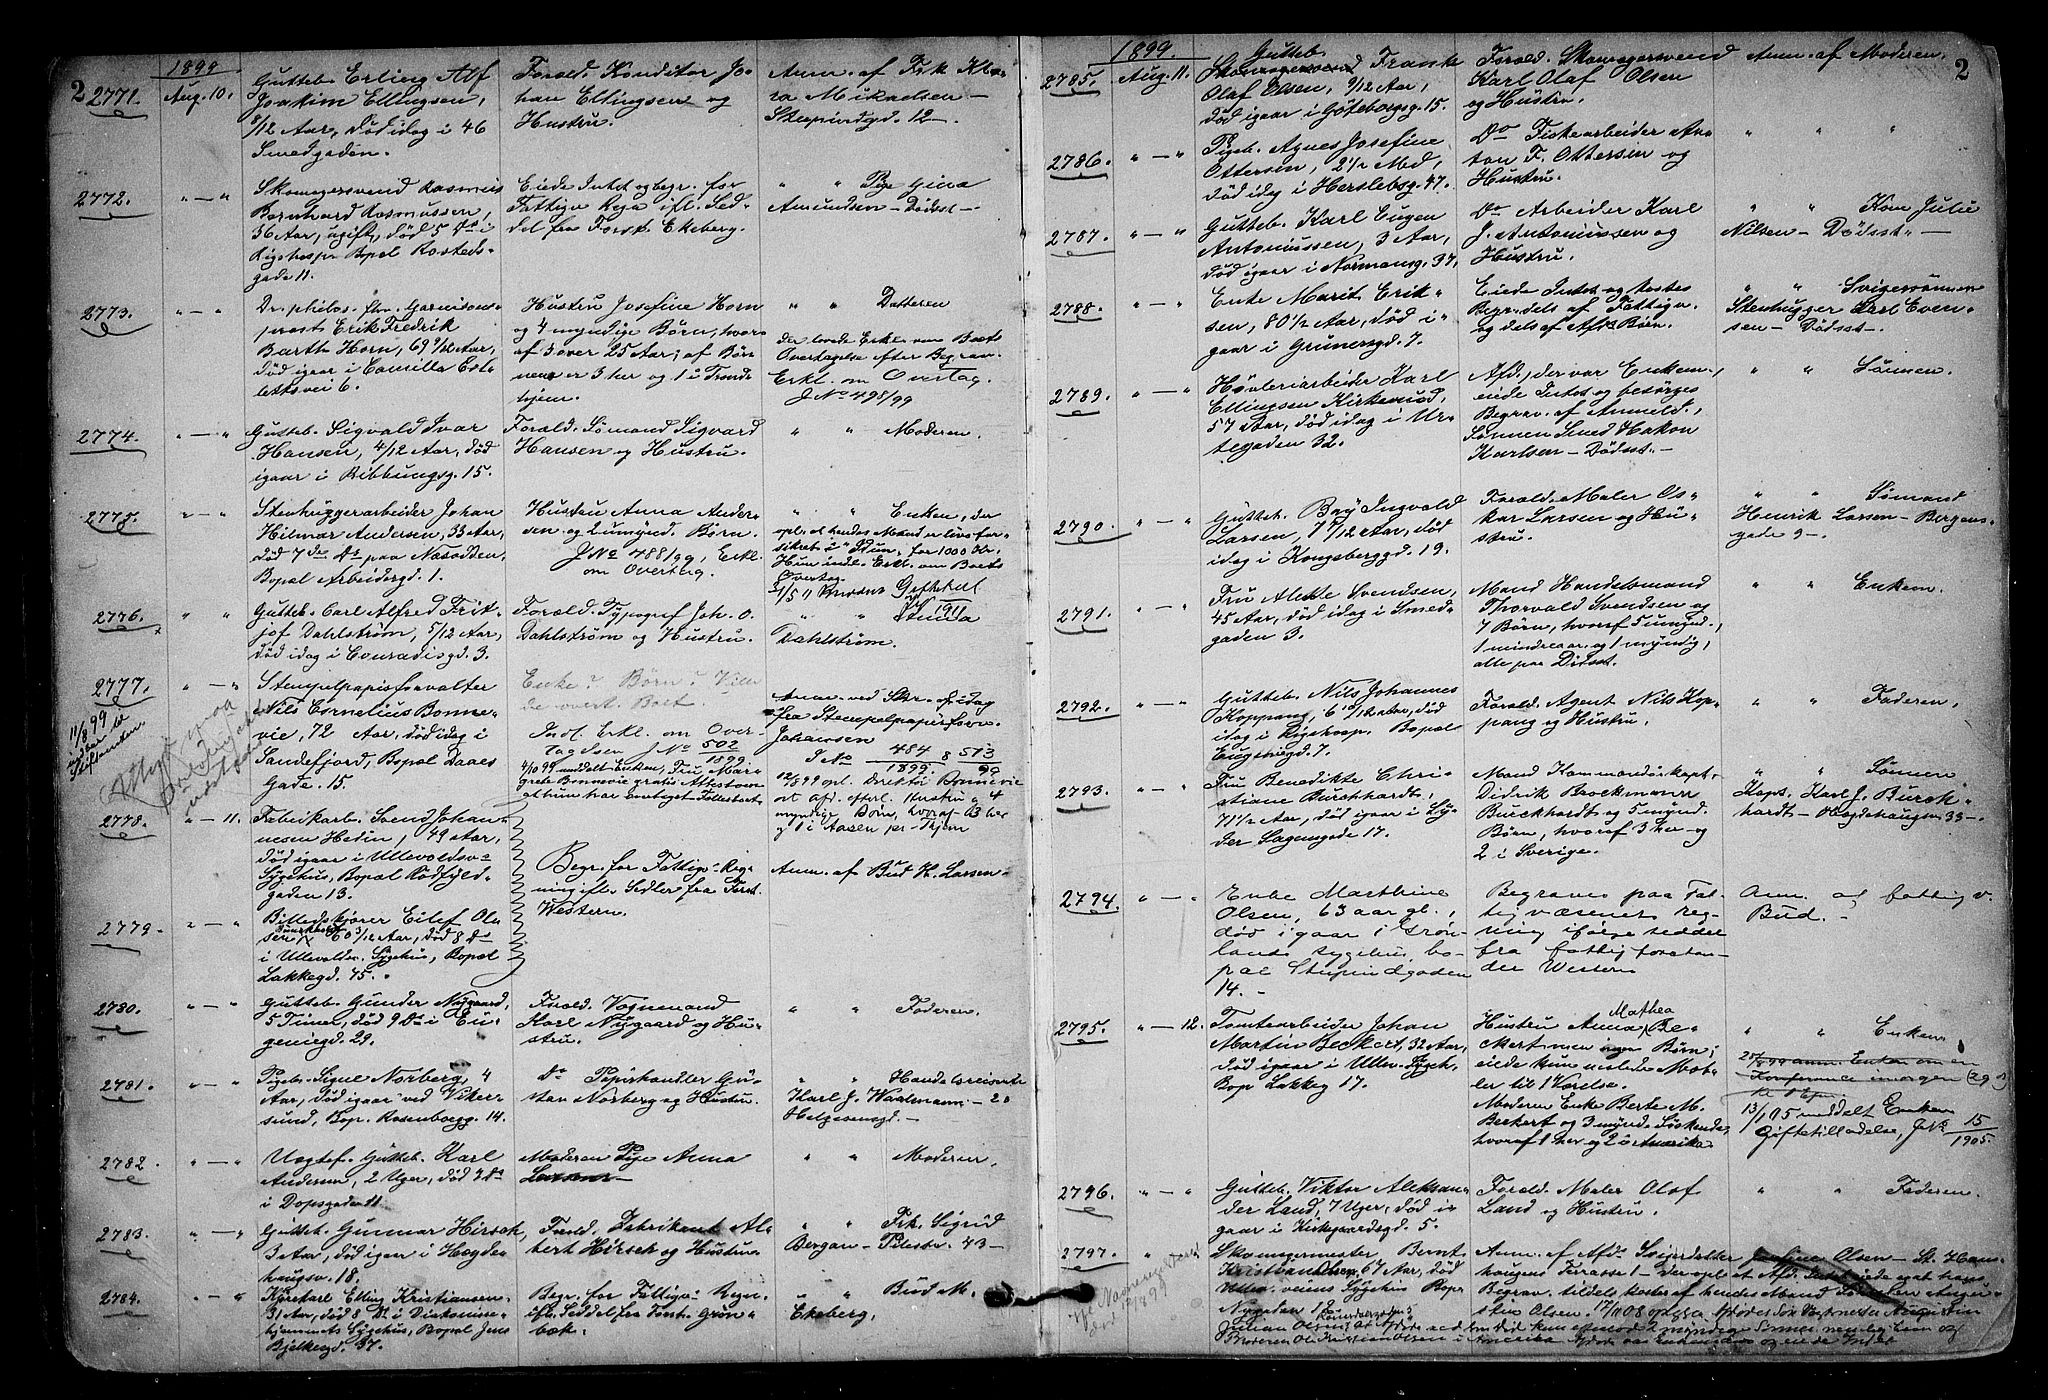 2
1899
2771.
Aug. 10.
Gutteb. Erling Alf
Joakim Ellingsen,
8/12 Aar, død idag i 46
Smedgaden.
Foræld. Konditor Jo-
han Ellingsen og
Hustru.
Anm. af Frk. Kla-
ra Mikaelsen —
Stupindgd. 12 —
2772.
" — "
Skomagersvend Rasmus
Bernhard Rasmussen,
36 Aar, ugift, død 5 Ds i
Rigshosp. Bopæl Rosteds-
gade 11.
Eiede Intet og begr. for
Fattigv. Regn. ifl. Sed-
del fra Forst. Ekeberg.
" " Pige Gina
Amundsen — Dødsst —
2773.
" — "
Dr. philos. Stn. Garnisons-
prest Erik Fredrik
Barth Horn, 69 9/12 Aar,
død igaar i Camilla Col-
lettsvei 6.
Hustru Josefine Horn
og 4 myndige Børn, hvor-
af 3 over 25 Aar; af Bør-
nene er 3 her og 1 i Trond-
hjem.
" " Datteren
der lovede Erkl. om Boets
Overtagelse efter Begr.
Erkl. om Overtag.
J. No 498/99
2774.
" — "
Gutteb. Sigvald Ivar
Hansen, 4/12 Aar, død
igaar i Ribbungsg. 15.
Foræld. Sømand Sigvard
Hansen og Hustru.
" " Moderen.
2775.
" — "
Stenhuggerarbeider Johan
Hilmar Andersen, 33 Aar,
død 7de Ds paa Næsodden,
Bopæl Arbeidergd. 1.
Hustru Anna Ander-
sen og 2 umynd. Børn.
J No 488/99, Erkl.
om Overtag.
" " Enken, der
opl. at hendes Mand er livsfor-
sikret i "Idun" for 1000 Kr.
Hun indl. Erkl. om Boets
Overtag.
2776.
" "
Gutteb. Carl Alfred Frit-
jof Dahlstrøm, 5/12 Aar,
død idag i Conradisgd. 3.
Foræld. Typograf Joh. O.
Dahlstrøm og Hustru.
" " Svenda
Dahlstrøm.
2777.
" — "
11/8 99
Stempelpapirforvalter
Nils Cornelius Bonne-
vie, 72 Aar, død idag i
Sandefjord, Bopæl Daaes
Gade 15.
Enke? Børn? Vilm
de overt. Boet.
Indl. Erkl. om Over-
tagelsen J No 502/1899
4/10 99 meddelt Enken, Fru Mar-
grete Bonnevie gratis Attest om
at hun har overtaget Fællesboet.
Anm. ved Skr. af idag
fra Stempelpapirforv.
Johanssen
J No 484/1899 & 513/99
12/8 99 opl. Direktør Bonnevie
at afd. efterl. Hustru og 4
myndige Børn, hvoraf 3 her
og 1 i Aasen pr. Thjem
2778.
" — 11.
Fabrikarb. Svend Johan-
nesen Hedin, 49 Aar,
død igaar i Ullevoldsv.
Sygehus, Bopæl Rødfyld-
gaden 13.
Begr. for Fattigv. Reg-
ning ifl. Sedler fra Forst.
Western.
Anm. af Bud H. Larsen
2779.
" — "
Billedskjærer Eilef Ol-
sen, 60 3/12 Aar, død 8 Ds
i Ullevoldsv. Sygehus, Bopæl
Lakkegd. 45.
2780.
" — "
Gutteb. Gunder Nygaard,
5 Timer, død 9 Ds i Eu-
geniegd. 29.
Foræld. Vognmand
Karl Nygaard og Hu-
stru.
" " Faderen.
2781.
" — "
Pigeb. Signe Norberg, 4
Aar, død igaar ved Viker-
sund, Bop. Rosenborgg. 14.
Do Papirhandler Gu-
stav Norberg og Hustru.
" " Handelsreisende
Karl J. Waalmann — 20
Helgesensgd. —
2782.
" — "
Uægtef. Gutteb. Karl
Andersen, 2 Uger, død 9 Ds
i Dopsgade 11.
Moderen Pige Anna
Larsen
" " Moderen.
2783.
" — "
Gutteb. Gunnar Hirsch,
3 Aar, død igaar i Hegde-
haugsv. 18.
Foræld. Fabrikant Al-
bert Hirsch og Hustru
" " Frk. Sigrid
Bergan — Pilestr. 43 —
2784.
" — "
Kjørekarl Elling Kristiansen
31 Aar, død 8 Ds i Diakonisse-
hjemmets Sygehus, Bopæl Jens
Bjelkegd. 37.
Begr. for Fattigv. Regn.
ifl. Seddel fra Forst. Grøn-
bæk.
" " Bud M.
Ekeberg.
2
1899.
2785.
Aug. 11.
Gutteb.
Frank
Olaf Olsen, 9/12 Aar,
død igaar i Göteborgsg. 15.
Foræld. Skomagersvend
Karl Olaf Olsen
og Hustru.
Anm. af Moderen.
2786.
" — "
Pigeb. Agnes Josefine
Ottersen, 2 1/2 Md,
død idag i Herslebsg. 47.
Do Fiskearbeider An-
ton F. Ottersen og
Hustru.
" " "
2787.
" — "
Gutteb. Karl Eugen
Antonissen, 3 Aar,
død igaar i Normansg. 37.
Do Arbeider Karl
J. Antonissen og
Hustru.
" " Kone Julie
Nilsen — Dødsst —
2788.
" — "
Enke Marit Erik-
sen, 80 1/2 Aar, død i-
gaar i Grünersgd. 7.
Eiede Intet og kostes
Begr. dels af Fattigv.
og dels af Afds Børn.
" " Svigersønnen
Stenhugger Karl Even-
sen — Dødsst. —
2789.
" — "
Høvleriarbeider Karl
Ellingsen Kirkerud,
57 Aar, død idag i Ur-
tegaden 32.
Afd., der var Enkem.,
eiede Intet og besørges
Begrav. af Anmeld.,
Sønnen Smed Hakon
Karlsen — Dødsst. —
" " Sønnen.
2790.
" — "
Gutteb. Boy Ingvald
Larsen, 1 /12 Aar, død
idag i Kongsberggd. 19.
Foræld. Maler Os-
kar Larsen og Hu-
stru.
" " Sømand
Henrik Larsen — Bergens-
gade 9 —
2791.
" — "
Fru Alette Svendsen,
45 Aar, død idag i Smed-
gaden 3.
Mand Handelsmand
Thorvald Svendsen og
7 Børn, hvoraf 5 umynd.,
1 mindreaar. og 1 myndig,
alle paa Dødsst.
" " Enkem.
2792.
" — "
Gutteb. Nils Johannes
Koppang, 6 10/12 Aar, død
idag i Rigshosp. Bopæl
Eugeniegd. 7.
Foræld. Agent Nils Kop-
pang og Hustru.
" " Faderen.
2793.
" — "
Fru Benedikte Chri-
stiane Burchhardt,
71 1/2 Aar, død igaar i Sy-
der Sagensgade 17.
Mand Kommandørkapt.
Didrik Brockmann
Burckhardt og 5 mynd.
Børn, hvoraf 3 her og
2 i Sverige.
" " Sønnen
Kaps. Karl J. Burck-
hardt — Hegdehaugsv 33 —
2794.
" — "
Enke Marthine
Olsen, 63 aar gl.,
død igaar i Grøn-
lands sygehus, bo-
pæl Stupindgaden
14. —
Begraves paa Fat-
tigvæsenets reg-
ning ifølge seddel
fra fattigforstan-
der Western
Anm. af fattigv.
Bud. —
2795.
" — 12.
Tomtearbeider Johan
Martin Beckert, 32 Aar,
død igaar i Ullev. Sygeh.
Bop Lakkeg 17.
Hustru Anna Mathea Be-
ckert men ingen Børn;
eiede kun nylede Møb-
ler til 1 Værelse.
Moderen Enke Berte M.
Beckert og 3 mynd. Søskende,
hvoraf 1 her og 2 i Amerika.
" " Enken
Konference imorgen
13/1 05 meddelt Enken
Giftetilladelse, J No 15/1905.
2796.
" — "
Gutteb. Viktor Aleksan-
der Land, 7 Uger, død i-
gaar i Kirkegaardsgd. 5.
Foræld. Maler Olaf
Land og Hustru.
" " Faderen.
2797.
"
Skomagermester Bernt
Kristian Olsen, 67 Aar, død
Sygehus Bopæl
Nygaden 12
Anm. af Afds Svigerdatter Josefine Olsen — St. Hans-
haugens Terrasse 1 — Der opl. at Afd. Intet eiede og at hans
Begrav. tildels kostes af hendes Mand Skomager Augu-
stin Olsen.